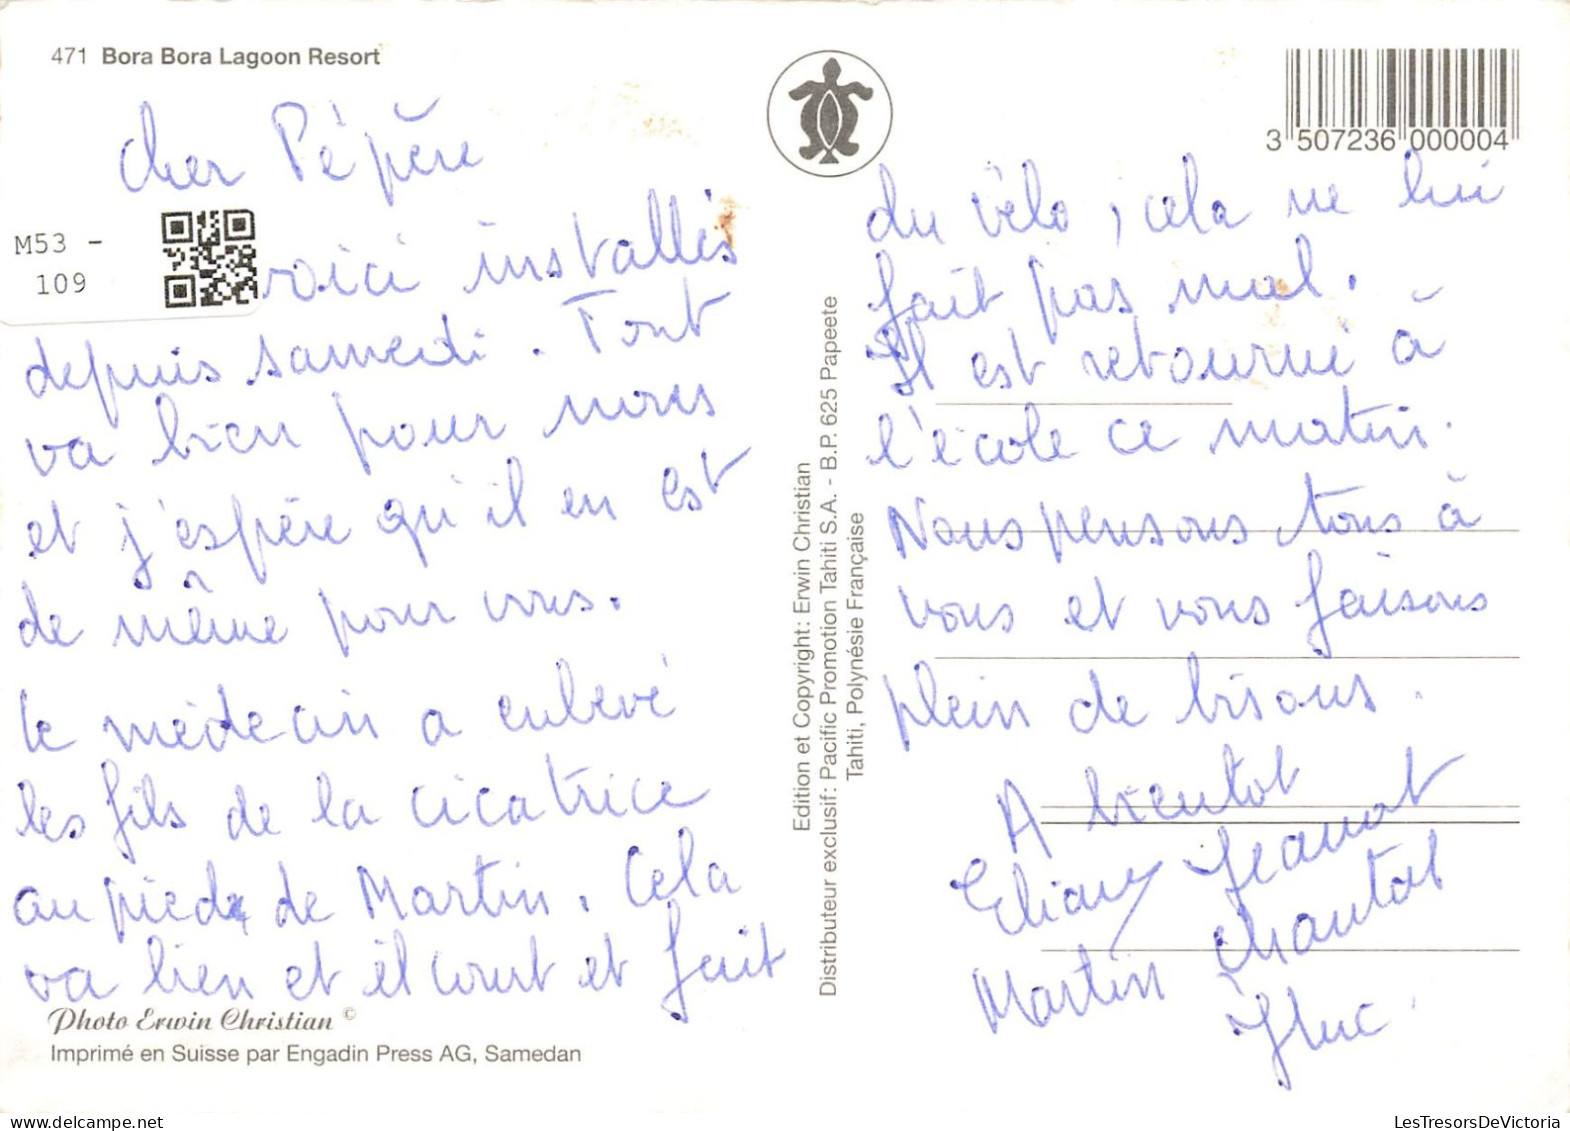 471 Bora Bora Lagoon Resort
Cher Pépère
voici installés
depuis samedi. Tout
va bien pour nous
et j'espère qu'il en est
de même pour vous.
Le médecin a enlevé
les fils de la cicatrice
au pied de Martin. Cela
va bien et il court et fait
Photo Erwin Christian ©
Imprimé en Suisse par Engadin Press AG, Samedan
M53 -
109
Edition et Copyright: Erwin Christian
Distributeur exclusif: Pacific Promotion Tahiti S.A. - B.P. 625 Papeete
Tahiti, Polynésie Française
3 507236 000004
du vélo, cela ne lui
fait pas mal.
Il est retourné à
l'école ce matin.
Nous pensons tous à
vous et vous faisons
plein de bisous.
A bientot
Eliane Jeanot
Martin Chantal
JLuc
LesTresorsDeVictoria